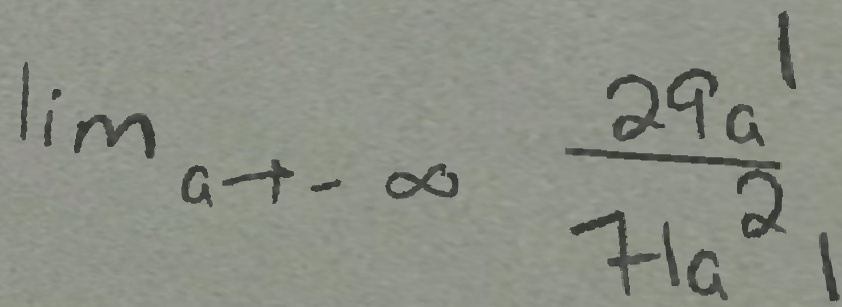 lim a→-∞ 29a^1 / 71a^2 1